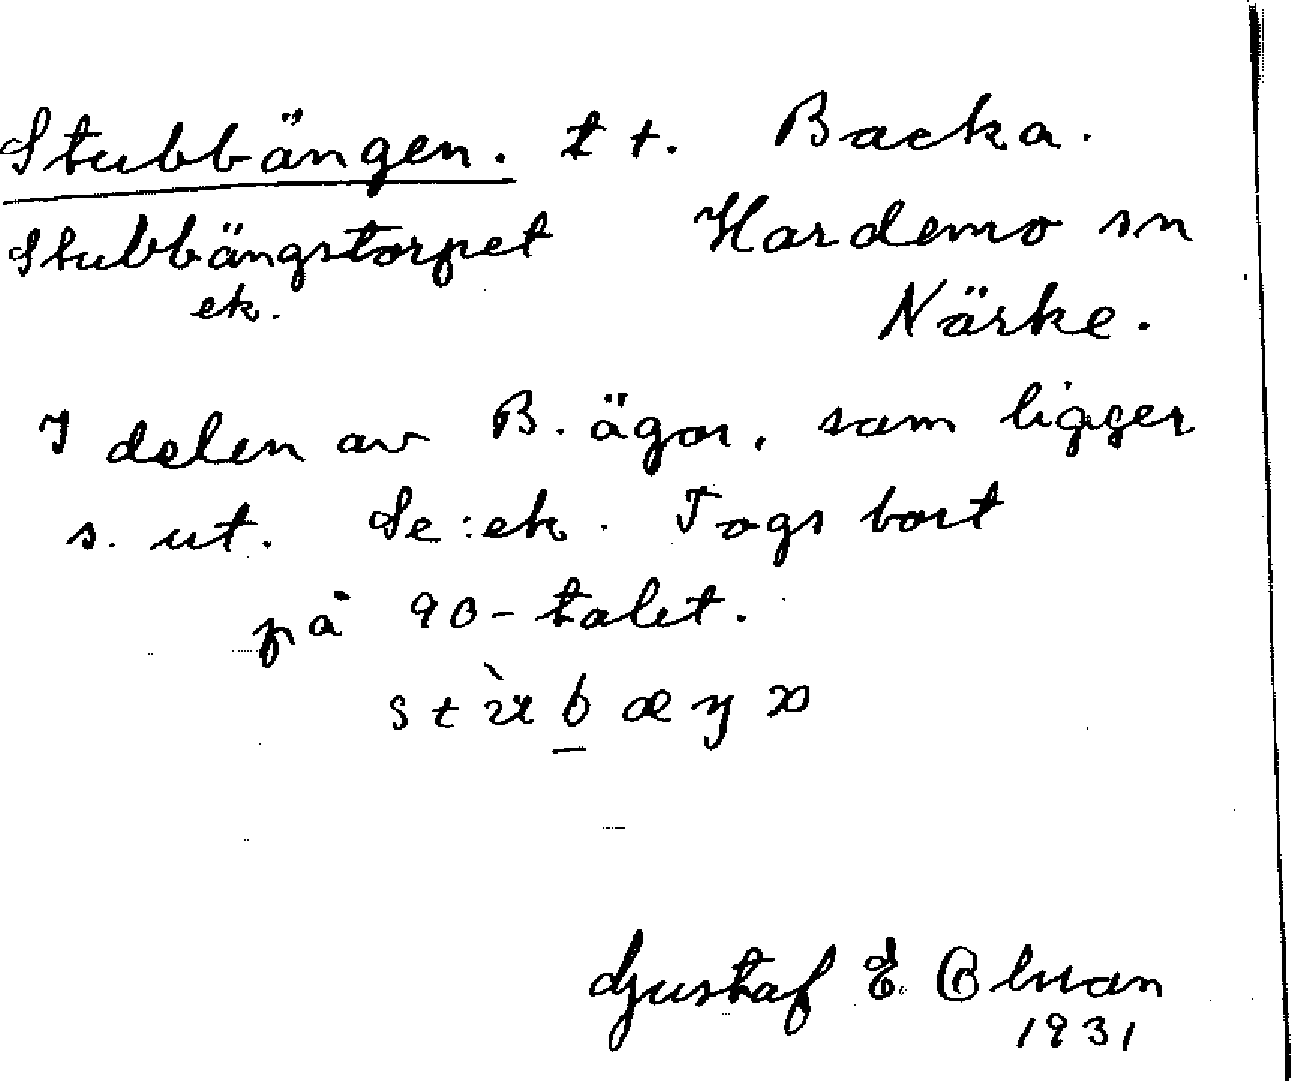 Stubbängen. t t. Backa.
Stubbängstorpet Hardemo sn
ek. Närke.
I delen av B. ägor, som ligger
s. ut. Se: ek. Togs bort
på 90-talet.
Gustaf E.
1931